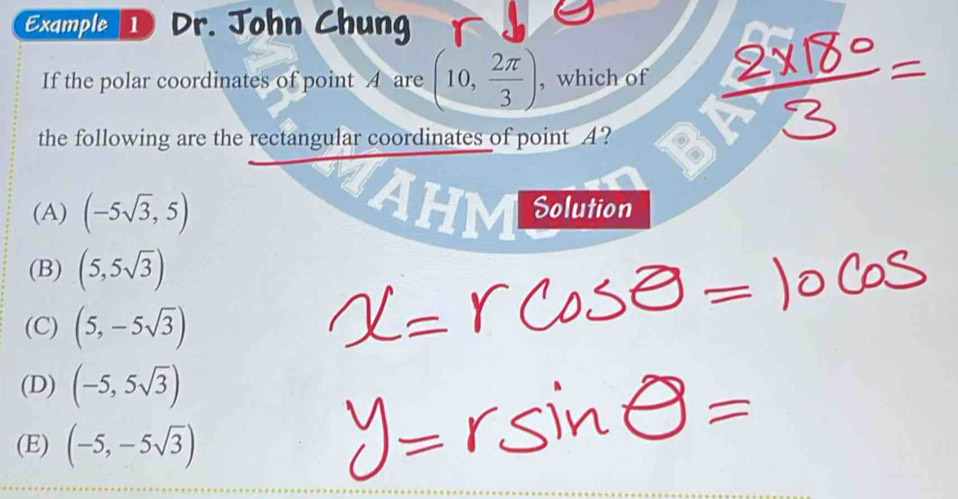 Example 1 Dr. John Chung
r θ
If the polar coordinates of point A are (10, 2π/3), which of
2×180/3 =
the following are the rectangular coordinates of point A?
(A) (-5√3, 5)
Solution
(B) (5, 5√3)
x = r cos θ = 10 cos
(C) (5, -5√3)
(D) (-5, 5√3)
y = r sin θ =
(E) (-5, -5√3)